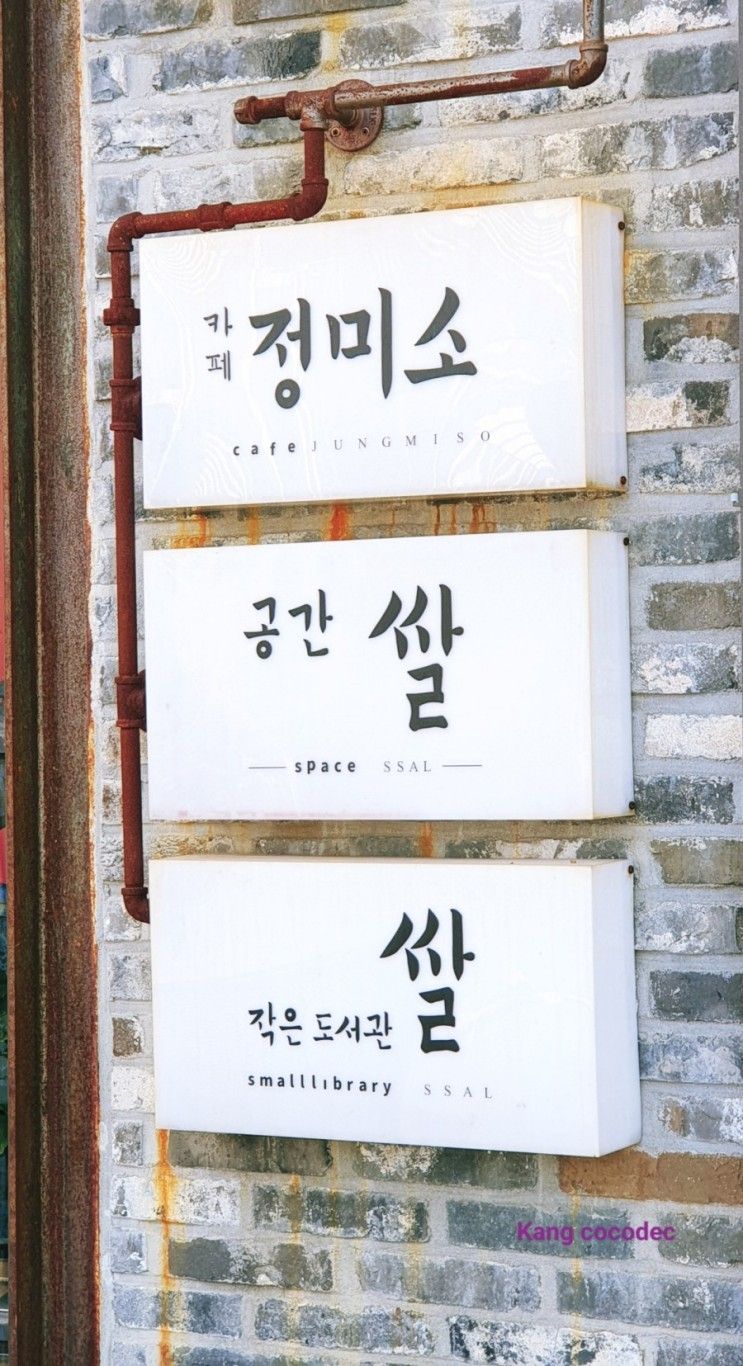 카페 정미소
cafe JUNGMISO
공간 쌀
space SSAL
쌀
작은 도서관
smalllıbrary SSAL
Kang cocodec